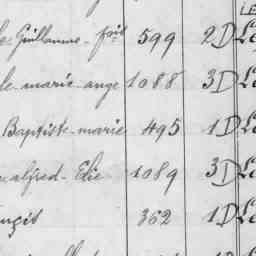 LE
Guillaume 599 2D Le
le-marie-ange 1088 3D Le
Baptiste-marie 495 1D Le
alfred-Elie 1089 3D Le
362 1D Le